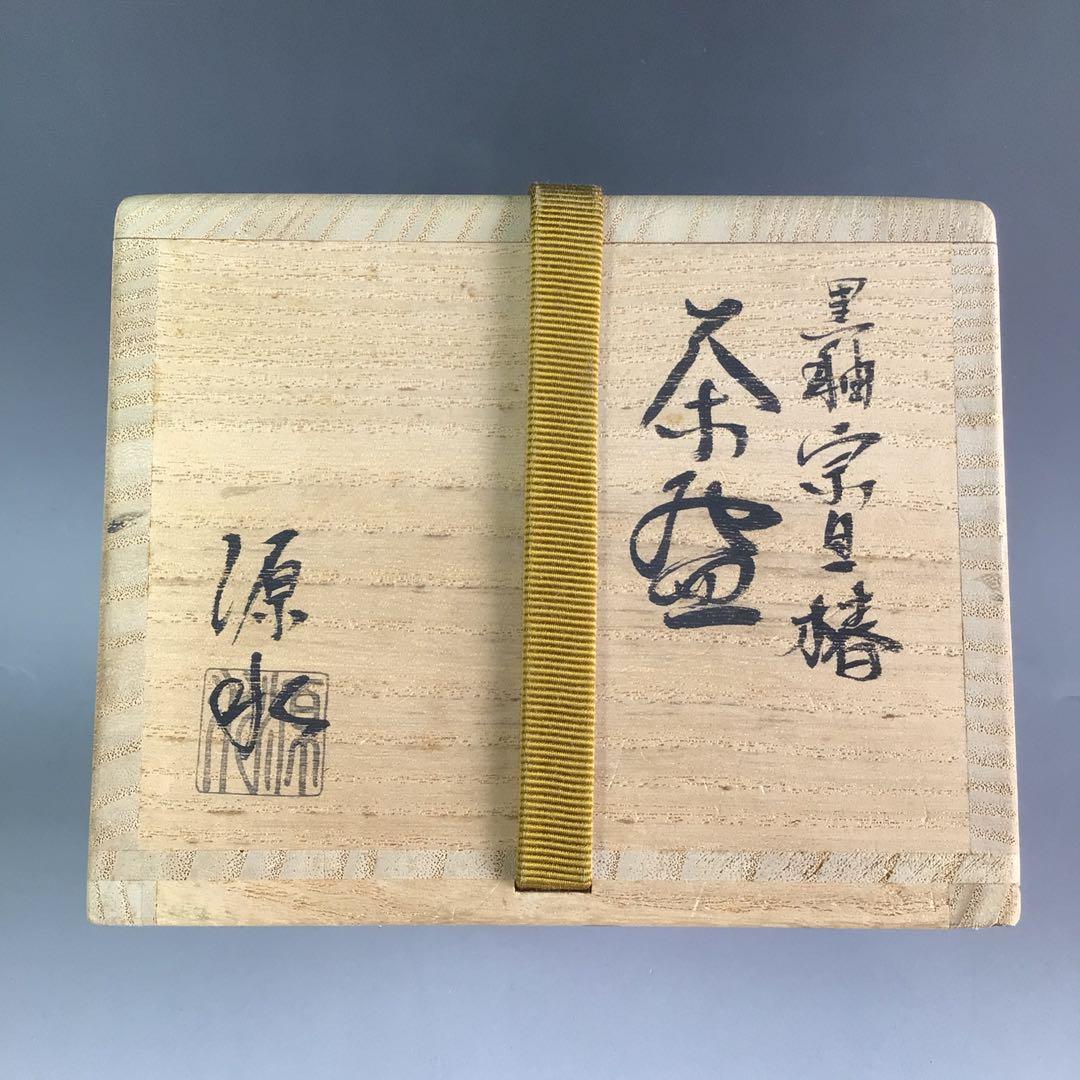 黒釉宗旦椿
茶盌
源水